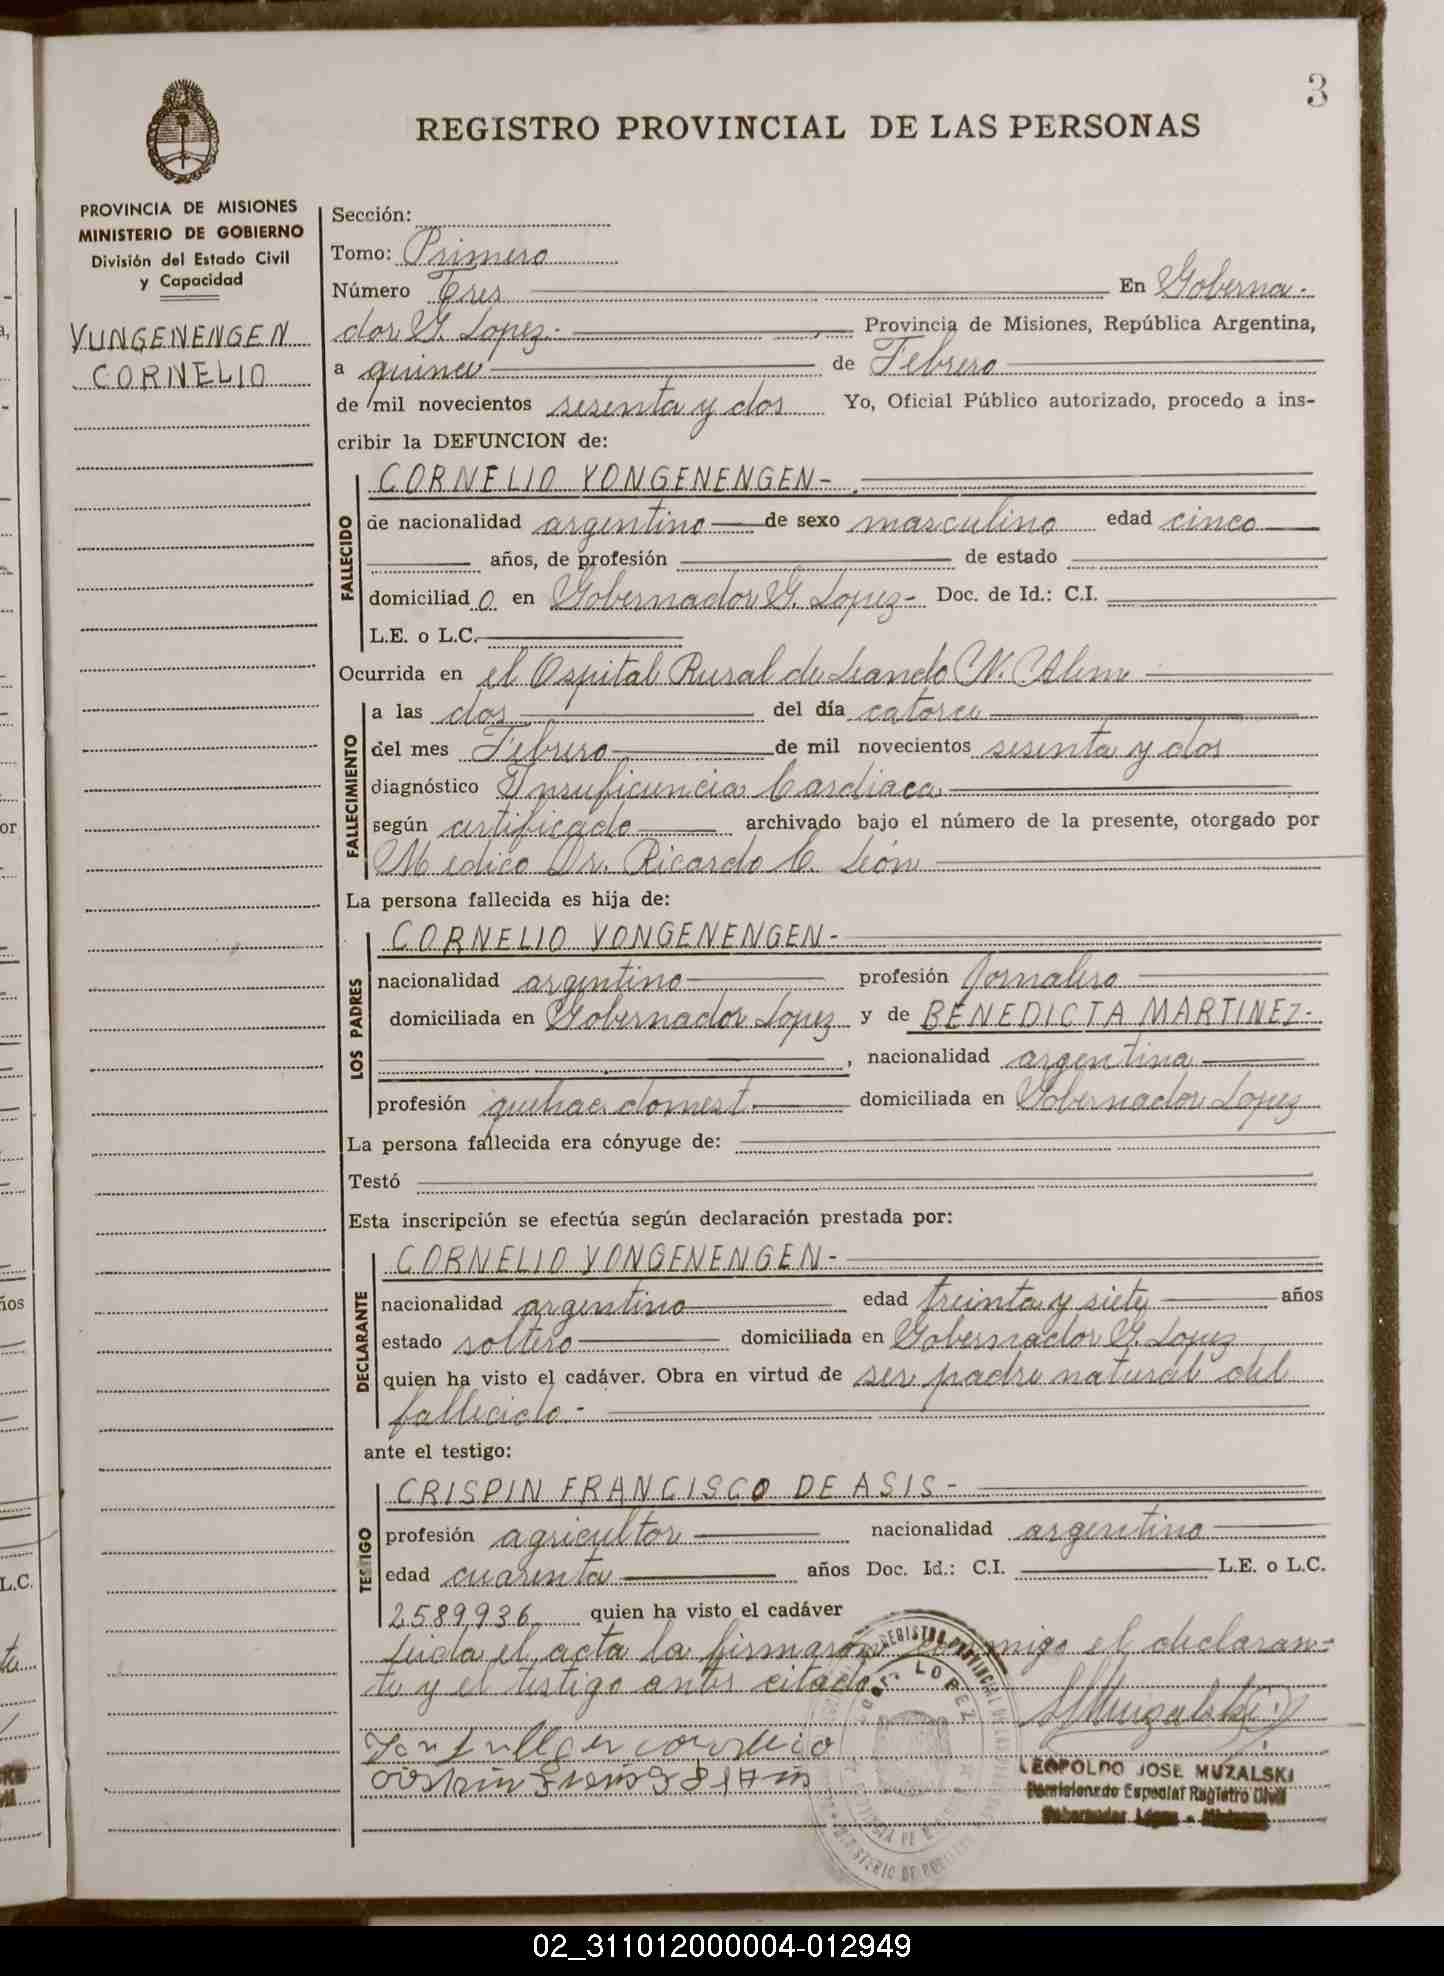 3
REGISTRO PROVINCIAL DE LAS PERSONAS
PROVINCIA DE MISIONES
MINISTERIO DE GOBIERNO
División del Estado Civil
y Capacidad
YUNGENENGEN
CORNELIO
Sección:
Tomo: Primero
Número Tres En Goberna-
dor G. Lopez- Provincia de Misiones, República Argentina,
a quince de Febrero
de mil novecientos sesenta y dos Yo, Oficial Público autorizado, procedo a ins-
cribir la DEFUNCION de:
FALLECIDO
CORNELIO YONGENENGEN-
de nacionalidad argentino de sexo masculino edad cinco
años, de profesión de estado
domiciliado en Gobernador G. Lopez- Doc. de Id.: C.I.
L.E. o L.C.
Ocurrida en el Ospital Rural de Leandro N. Alem
FALLECIMIENTO
a las dos del día catorce
del mes Febrero de mil novecientos sesenta y dos
diagnóstico Insuficiencia Cardiaca
según certificado archivado bajo el número de la presente, otorgado por
Medico Dr. Ricardo C. León
La persona fallecida es hija de:
LOS PADRES
CORNELIO YONGENENGEN-
nacionalidad argentino profesión Jornalero
domiciliada en Gobernador Lopez y de BENEDICTA MARTINEZ-
, nacionalidad argentina
profesión quehac domest. domiciliada en Gobernador Lopez
La persona fallecida era cónyuge de:
Testó
Esta inscripción se efectúa según declaración prestada por:
DECLARANTE
CORNELIO YONGENENGEN-
nacionalidad argentino edad treinta y siete años
estado soltero domiciliada en Gobernador G. Lopez
quien ha visto el cadáver. Obra en virtud de ser padre natural del
fallecido-
ante el testigo:
TESTIGO
CRISPIN FRANCISCO DE ASIS-
profesión agricultor nacionalidad argentino
edad cuarenta años Doc. Id.: C.I. L.E. o L.C.
2589936 quien ha visto el cadáver
Leida el acta la firmaron conmigo el declaran-
te y el testigo antes citado
LEOPOLDO JOSE MUZALSKI
Comisionado Especial Registro Civil
Gobernador López - Misiones
02_311012000004-012949